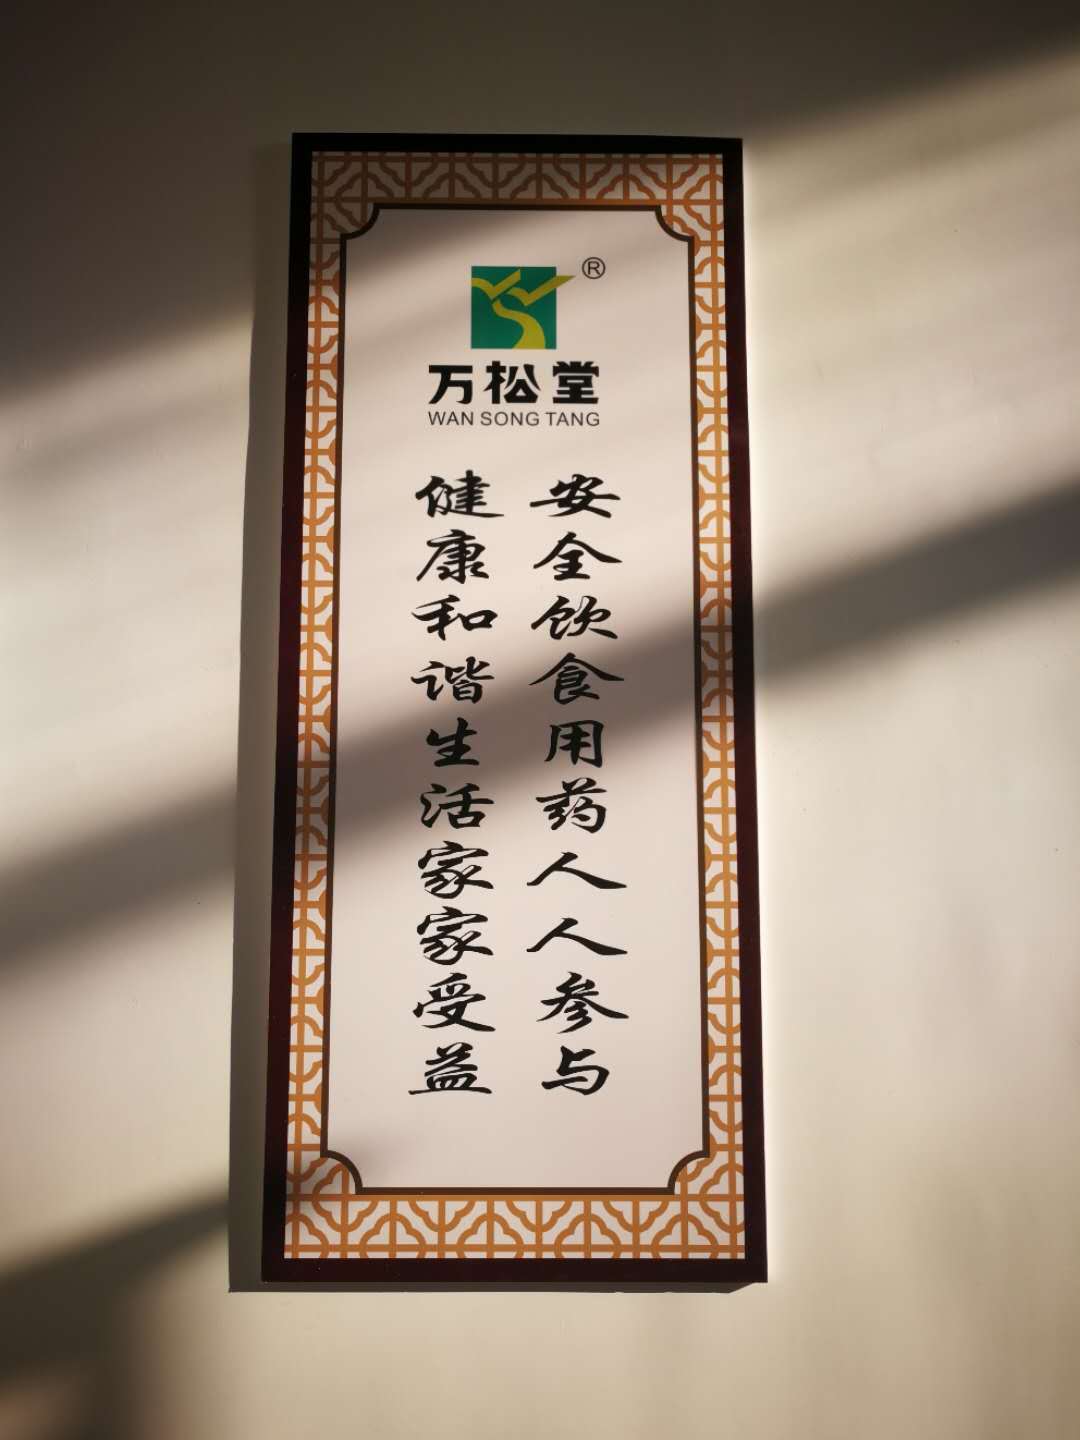 ®
万松堂
WAN SONG TANG
安全饮食用药人人参与
健康和谐生活家家受益